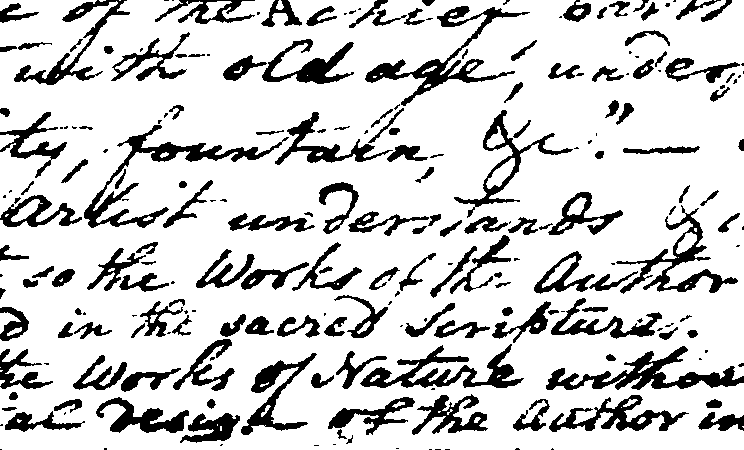 of the chief parts
with old age, under
ty, fountain, &c."—
artist understands &c
so the Works of the Author
d in the sacred Scriptures.
the Works of Nature withou
al Design — of the Author in